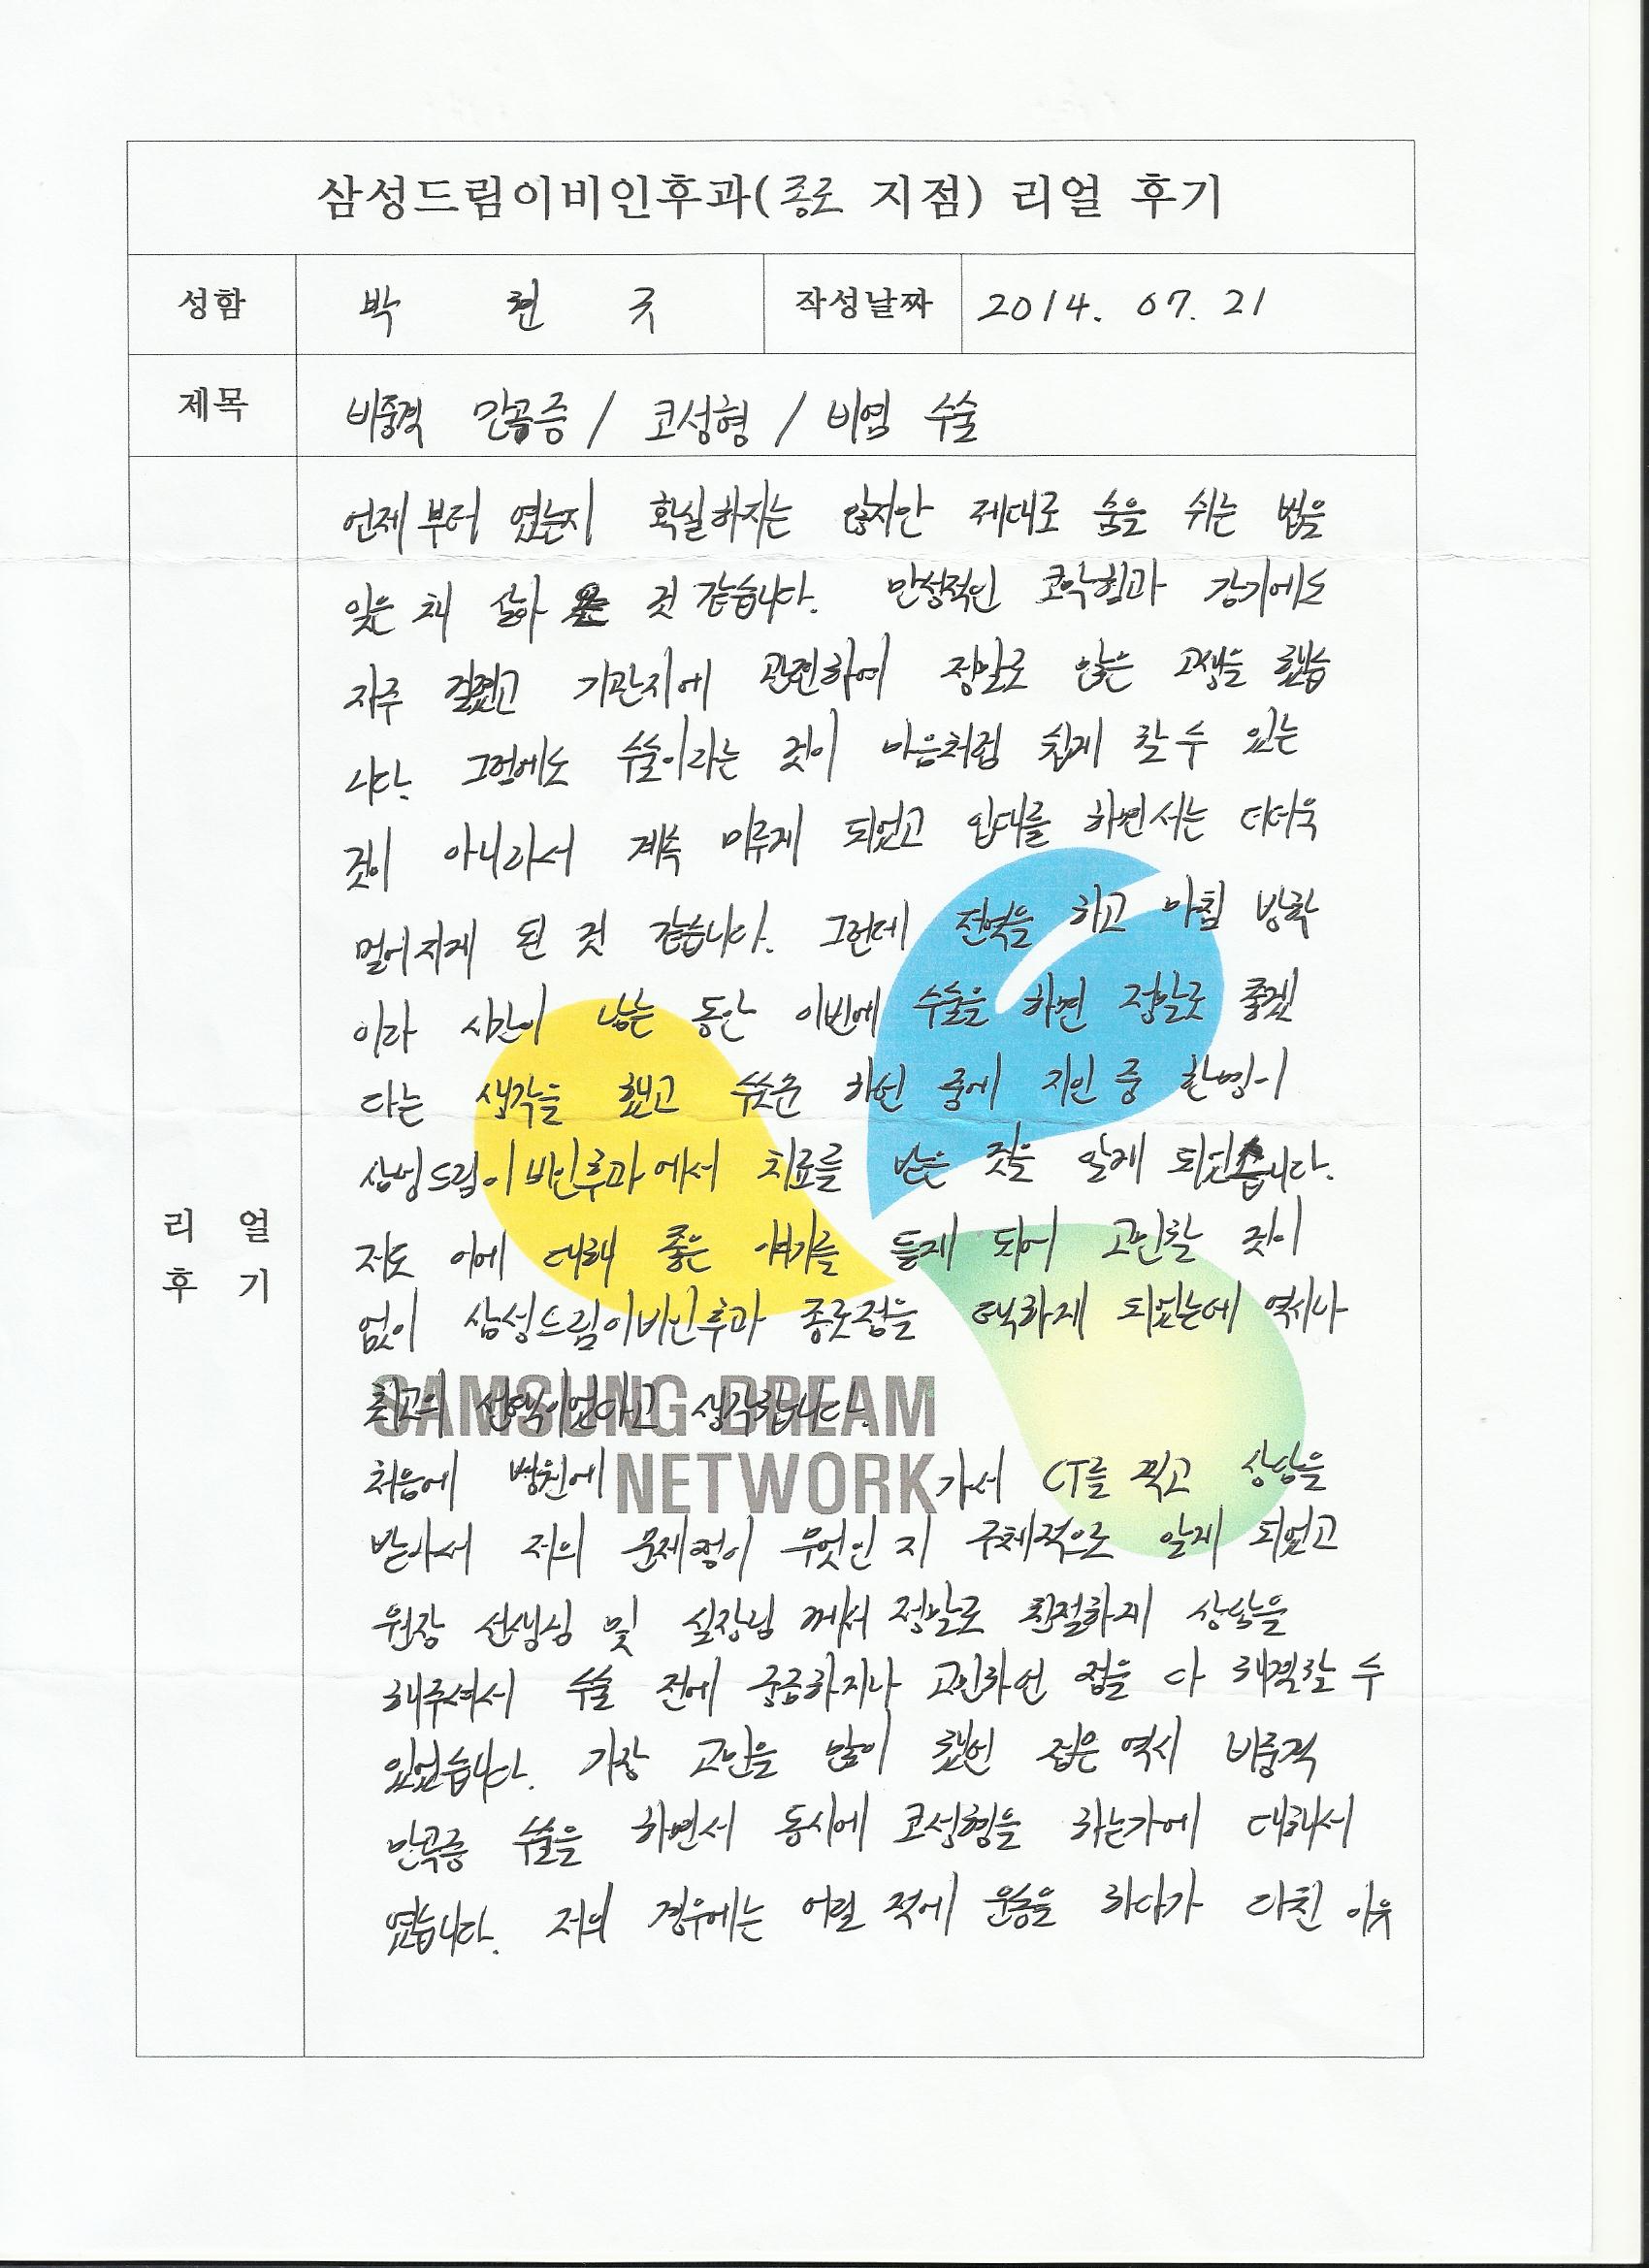 삼성드림이비인후과(종로 지점) 리얼 후기
성함 박 현 국 작성날짜 2014. 07. 21
제목 비중격 만곡증 / 코성형 / 비염 수술
리 얼
후 기
언제부터 였는지 확실하지는 않지만 제대로 숨을 쉬는 법을
잊은 채 살아 온 것 같습니다. 만성적인 코막힘과 감기에도
자주 걸렸고 기관지에 관련하여 정말로 많은 고생을 했습
니다. 그럼에도 수술이라는 것이 마음처럼 쉽게 할 수 있는
것이 아니라서 계속 미루게 되었고 입대를 하면서는 더더욱
멀어지게 된 것 같습니다. 그런데 전역을 하고 마침 방학
이라 시간이 남는 동안 이번에 수술을 하면 정말로 좋겠
다는 생각을 했고 하던 중에 지인 중 한명이
삼성드림이비인후과에서 치료를 받은 것을 알게 되었습니다.
저도 이에 대해 좋은 얘기를 듣게 되어 고민할 것이
없이 삼성드림이비인후과 종로점을 택하게 되었는데 역시나
최고의 선택이었다고 생각합니다.
SAMSUNG DREAM
NETWORK
처음에 병원에 가서 CT를 찍고 상담을
받아서 저의 문제점이 무엇인 지 구체적으로 알게 되었고
원장 선생님 및 실장님 께서 정말로 친절하게 상담을
해주셔서 수술 전에 궁금하거나 고민하던 점을 다 해결할 수
있었습니다. 가장 고민을 많이 했던 점은 역시 비중격
만곡증 수술을 하면서 동시에 코성형을 하는가에 대해서
였습니다. 저의 경우에는 어릴 적에 운동을 하다가 다친 이유